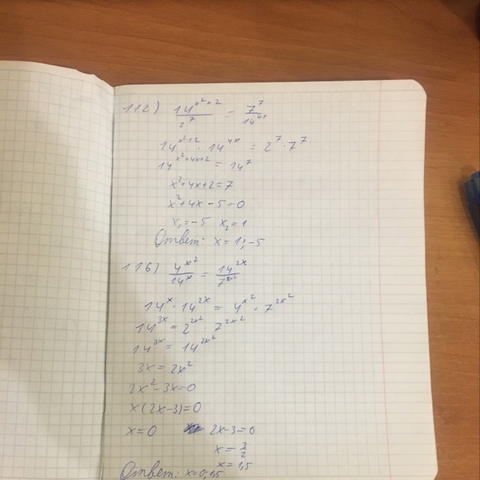 112) 14^{x²+2} / 2^7 = 7^7 / 14^{4x}
14^{x²+2} · 14^{4x} = 2^7 · 7^7
14^{x²+4x+2} = 14^7
x²+4x+2=7
x²+4x-5=0
x₁=-5 x₂=1
Ответ: x=1; -5
116) 4^{x²} / 14^x = 14^{2x} / 7^{2x²}
14^x · 14^{2x} = 4^{x²} · 7^{2x²}
14^{3x} = 2^{2x²} · 7^{2x²}
14^{3x} = 14^{2x²}
3x = 2x²
2x²-3x=0
x(2x-3)=0
x=0 2x-3=0
x=3/2
x=1,5
Ответ: x=0; 1,5